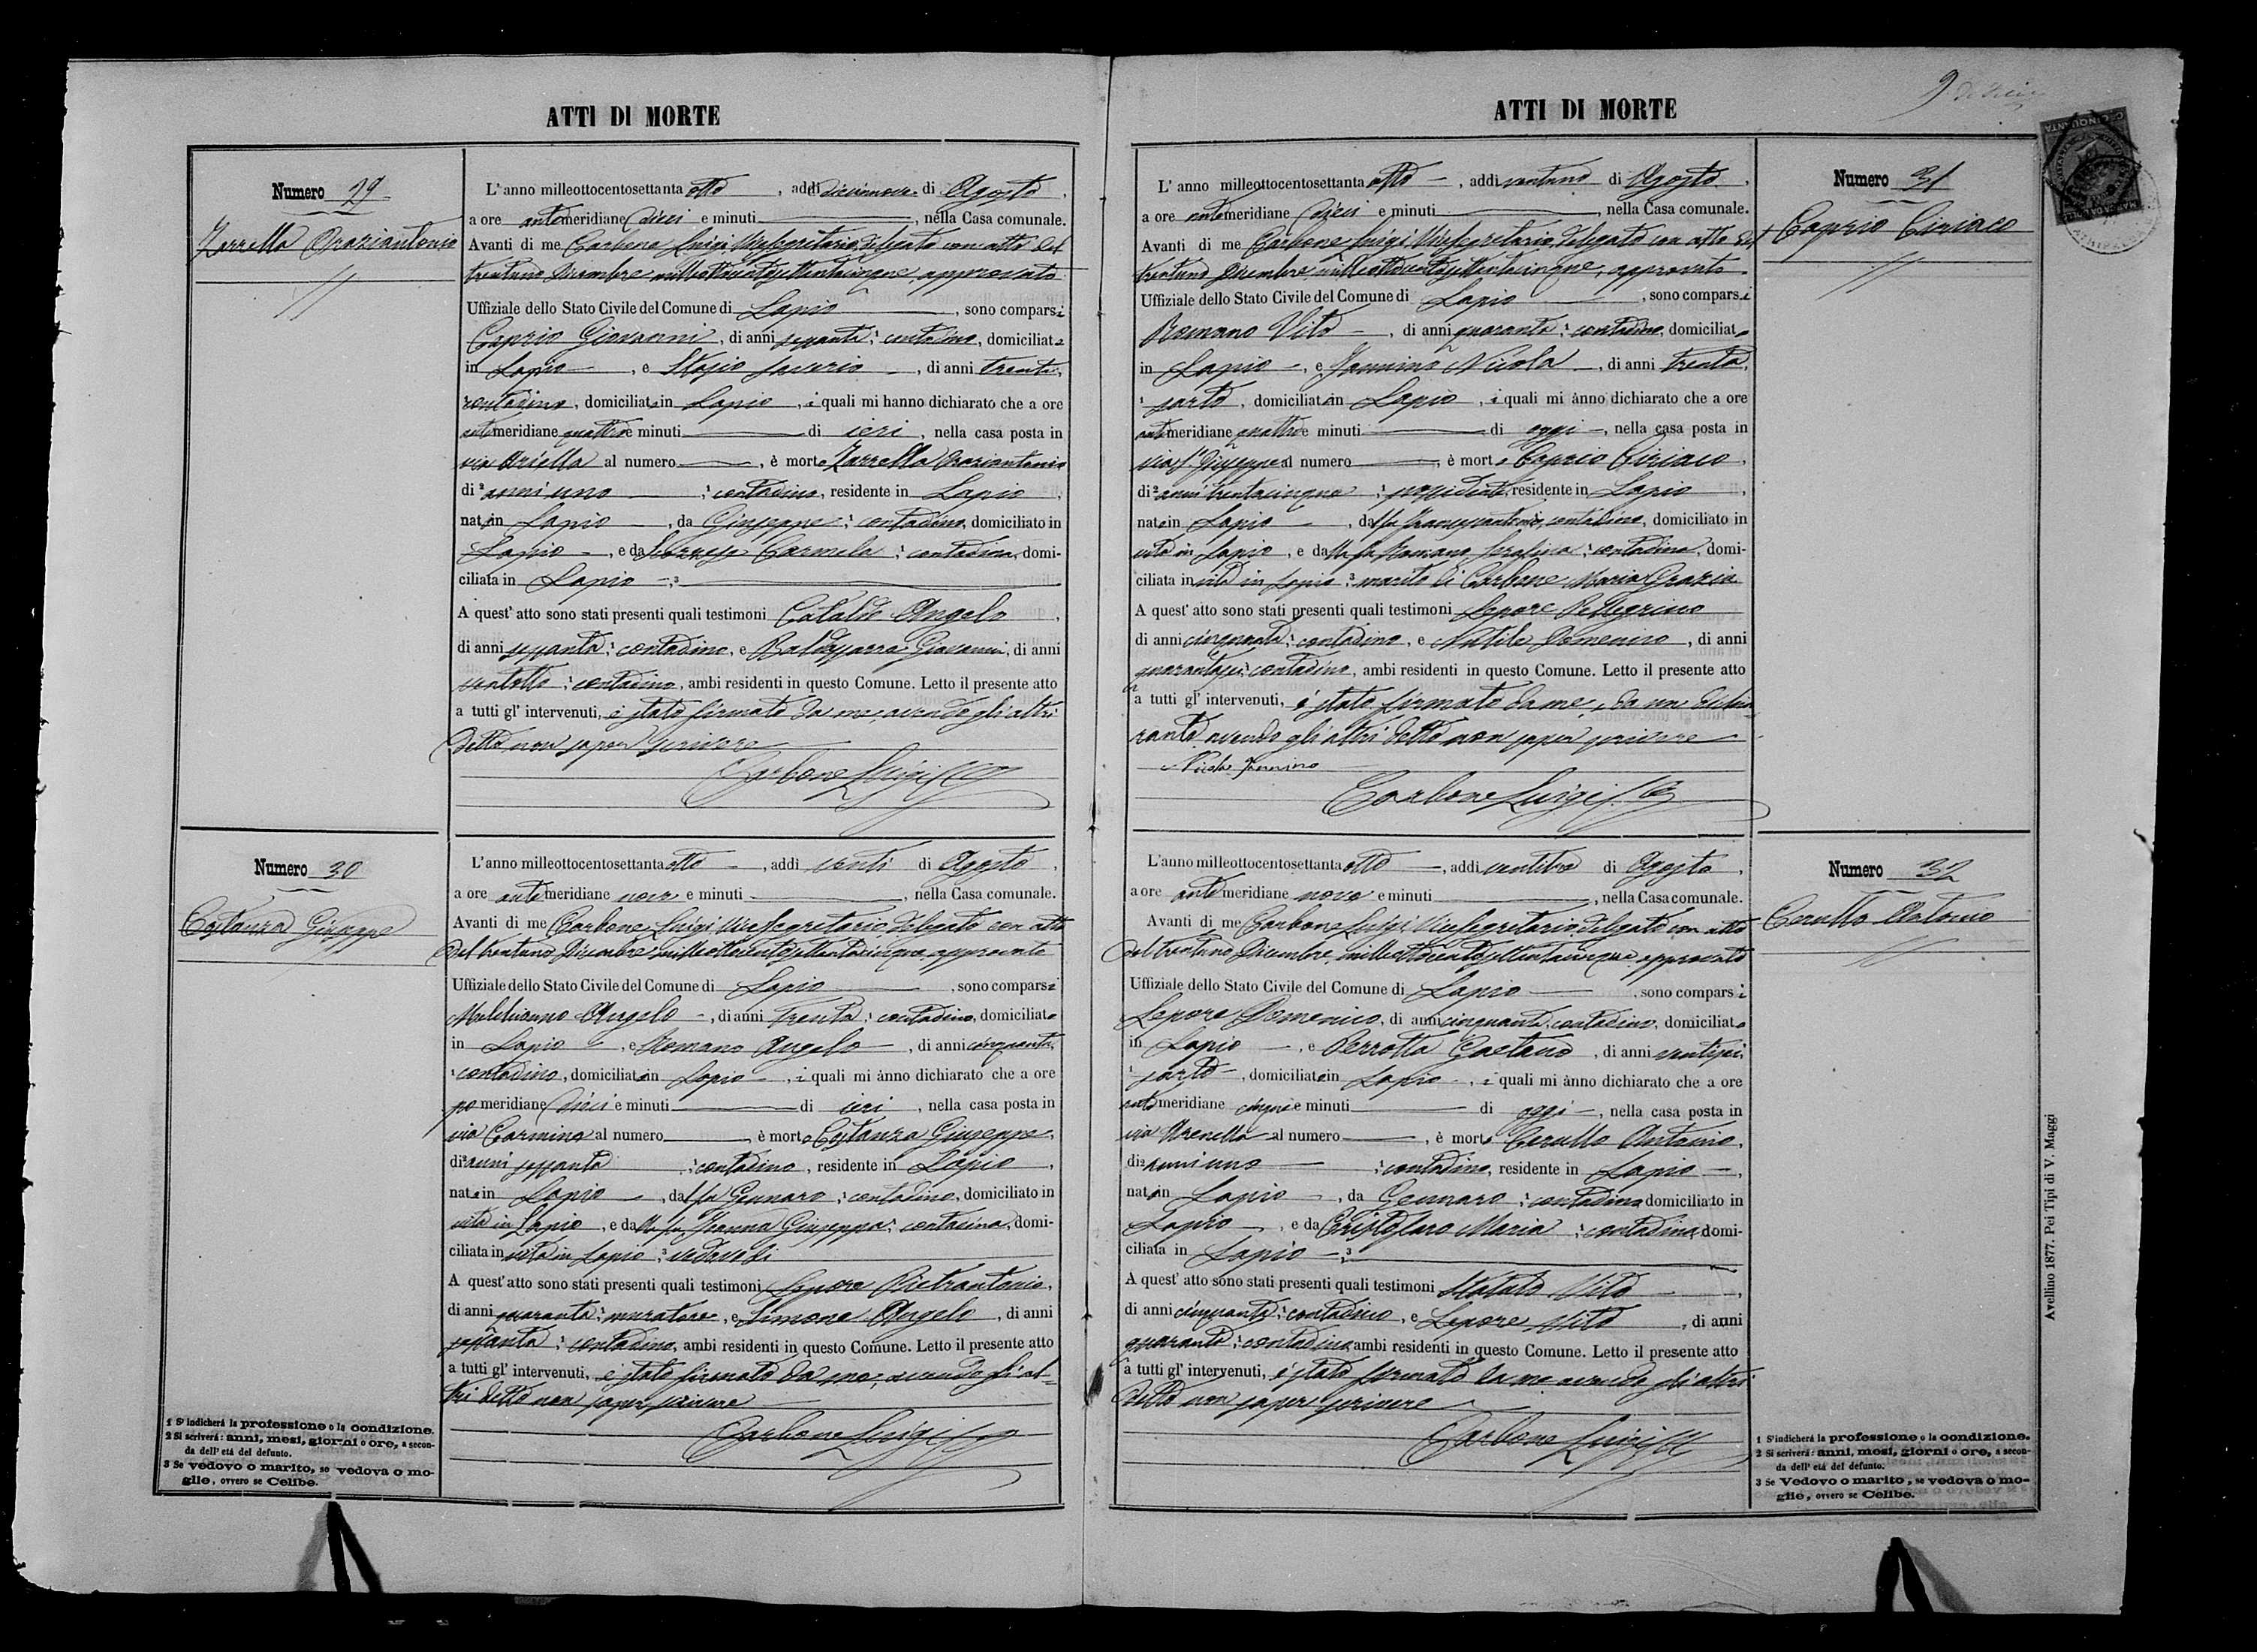 ATTI DI MORTE
Numero 29
Zarrella Oraziantonio
L'anno milleottocentosettanta otto, addi diciannove di Agosto,
a ore antimeridiane dieci e minuti, nella Casa comunale.
Avanti di me Carbone Luigi Vicesegretario delegato con atto del
trentuno Dicembre milleottocentosettantacinque, approvato
Uffiziale dello Stato Civile del Comune di Lapio, sono comparsi
Caprio Giovanni, di anni sessanta, contadino, domiciliato
in Lapio, e Stasio Saverio, di anni trenta,
contadino, domiciliato in Lapio, i quali mi hanno dichiarato che a ore
antimeridiane quattro e minuti di ieri, nella casa posta in
via Ariella al numero, è morto Zarrella Oraziantonio
di 2 anni uno, contadino, residente in Lapio,
nato in Lapio, da Giuseppe, contadino, domiciliato in
Lapio, e da Carmela, contadina, domi-
ciliata in Lapio; 3
A quest' atto sono stati presenti quali testimoni Cataldo Angelo,
di anni sessanta, contadino, e Baldassarra Giovanni, di anni
ventotto, contadino, ambi residenti in questo Comune. Letto il presente atto
a tutti gl' intervenuti, è stato firmato da me, avendo gli altri
detto non saper scrivere
Carbone Luigi
Numero 30
Costanza Giuseppe
L'anno milleottocentosettanta otto, addi venti di Agosto,
a ore antimeridiane nove e minuti, nella Casa comunale.
Avanti di me Carbone Luigi Vicesegretario delegato con atto
del trentuno Dicembre milleottocentosettantacinque approvato
Uffiziale dello Stato Civile del Comune di Lapio, sono comparsi
Angelo, di anni trenta, contadino, domiciliato
in Lapio, e Romano Angelo, di anni cinquanta,
contadino, domiciliato in Lapio, i quali mi ànno dichiarato che a ore
pomeridiane dieci e minuti di ieri, nella casa posta in
via Carmine al numero, è morto Costanza Giuseppe,
di 2 anni sessanta, contadino, residente in Lapio,
nato in Lapio, dal fu Gennaro, contadino, domiciliato in
vita in Lapio, e dalla fu Giuseppa, contadina, domi-
ciliata in vita in Lapio, 3 vedovo di
A quest' atto sono stati presenti quali testimoni Lepore Pietrantonio,
di anni quaranta, muratore, e Simone Angelo, di anni
sessanta, contadino, ambi residenti in questo Comune. Letto il presente atto
a tutti gl' intervenuti, è stato firmato da me, avendo gli al-
tri detto non saper scrivere
Carbone Luigi
1 S' indicherà la professione o la condizione.
2 Si scriverà: anni, mesi, giorni o ore, a secon-
da dell' età del defunto.
3 Se vedovo o marito, se vedova o mo-
glie, ovvero se Celibe.
ATTI DI MORTE
9
Numero 31
Caprio Ciriaco
L' anno milleottocentosettanta otto, addi ventuno di Agosto,
a ore antimeridiane dieci e minuti, nella Casa comunale.
Avanti di me Carbone Luigi Vicesegretario delegato con atto del
trentuno Dicembre milleottocentosettantacinque, approvato
Uffiziale dello Stato Civile del Comune di Lapio, sono comparsi
Romano Vito, di anni quaranta, contadino, domiciliato
in Lapio, e Jannino Nicola, di anni trenta,
1 sarto, domiciliato in Lapio, i quali mi ànno dichiarato che a ore
antimeridiane quattro e minuti di oggi, nella casa posta in
via S. Giuseppe al numero, è morto Caprio Ciriaco,
di 2 anni trentacinque, possidente, residente in Lapio,
nato in Lapio, dal fu, contadino, domiciliato in
vita in Lapio, e dalla fu Romano Serafina, contadina, domi-
ciliata in vita in Lapio, 3 marito di Carbone Maria Grazia
A quest' atto sono stati presenti quali testimoni Lepore Pellegrino
di anni cinquanta, contadino, e Natile Domenico, di anni
quarantasei, contadino, ambi residenti in questo Comune. Letto il presente atto
a tutti gl' intervenuti, è stato firmato da me, e da un dichia
rante avendo gli altri detto non saper scrivere
Nicola Jannino
Carbone Luigi
Numero 32
Cerullo Antonio
L'anno milleottocentosettanta otto, addi ventitre di Agosto,
a ore antimeridiane nove e minuti, nella Casa comunale.
Avanti di me Carbone Luigi Vicesegretario delegato con atto
del trentuno Dicembre milleottocentosettantacinque approvato
Uffiziale dello Stato Civile del Comune di Lapio, sono comparsi
Lepore Domenico, di anni cinquanta, contadino, domiciliato
in Lapio, e Perrotta Gaetano, di anni ventisei,
1 sarto, domiciliato in Lapio, i quali mi ànno dichiarato che a ore
antimeridiane cinque e minuti di oggi, nella casa posta in
via Arenella al numero, è morto Cerullo Antonio,
di 2 anni uno, contadino, residente in Lapio,
nato in Lapio, da Gennaro, contadino domiciliato in
Lapio, e da Cristofaro Maria, contadina domi-
ciliata in Lapio, 3
A quest' atto sono stati presenti quali testimoni Vito,
di anni cinquanta, contadino, e Lepore Vito, di anni
quaranta, contadino, ambi residenti in questo Comune. Letto il presente atto
a tutti gl' intervenuti, è stato firmato da me avendo gli altri
detto non saper scrivere
Carbone Luigi
1 S' indicherà la professione o la condizione.
2 Si scriverà: anni, mesi, giorni o ore, a secon-
da dell' età del defunto.
3 Se Vedovo o marito, se vedova o mo-
glie, ovvero se Celibe.
Avellino 1877. Pei Tipi di V. Maggi